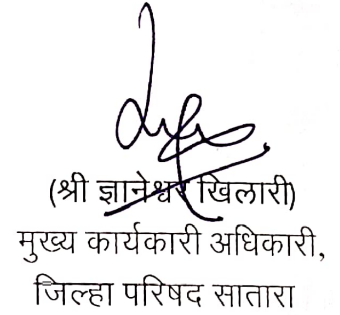 (श्री ज्ञानेश्वर खिलारी)
मुख्य कार्यकारी अधिकारी,
जिल्हा परिषद सातारा